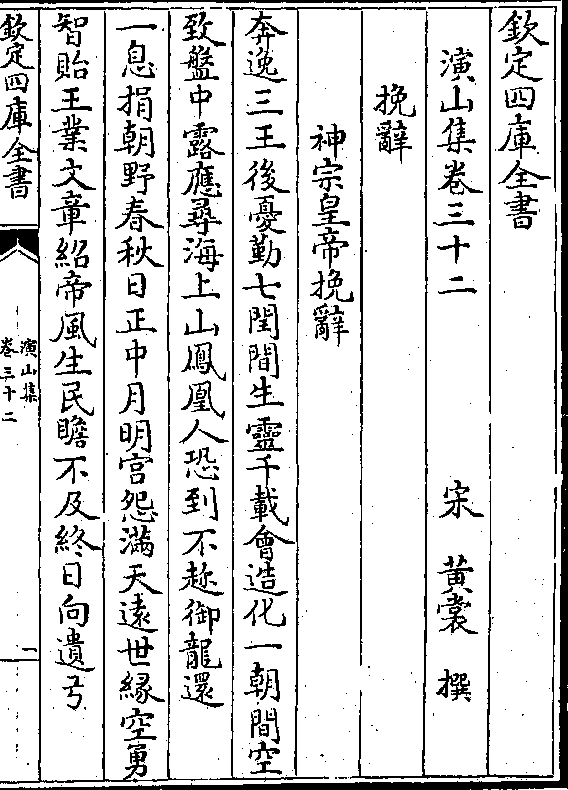 欽定四庫全書
演山集卷三十二
宋 黃裳 撰
挽辭
神宗皇帝挽辭
奔逸三王後憂勤七閏間生靈千載會造化一朝間空
致盤中露應尋海上山鳳凰人恐到不趂御龍還
一息捐朝野春秋日正中月明宮怨滿天遠世緣空勇
智貽王業文章紹帝風生民瞻不及終日向遺弓
欽定四庫全書
演山集
卷三十二
一